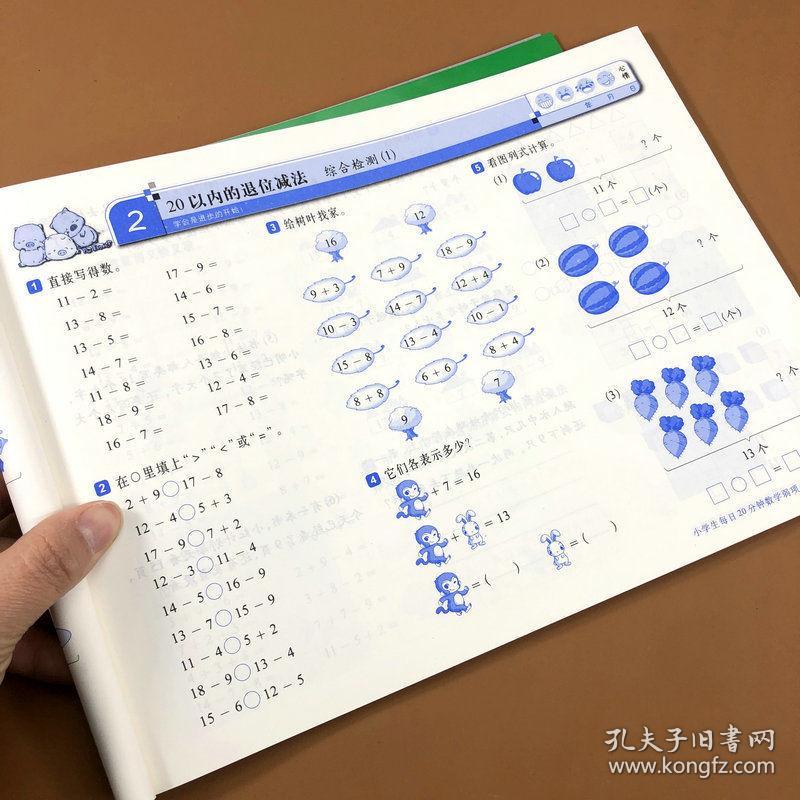 2
20以内的退位减法 综合检测(1)
学会是进步的开始!
心情
年 月 日
1 直接写得数。
11-2= 17-9=
13-8= 14-6=
13-5= 15-7=
14-7= 16-8=
11-8= 13-6=
18-9= 12-4=
16-7= 17-8=
2 在○里填上“>”“<”或“=”。
2+9○17-8
12-4○5+3
17-9○7+2
12-3○11-4
14-5○16-9
13-7○15-9
11-4○5+2
18-9○13-4
15-6○12-5
3 给树叶找家。
16 12
9+3 7+9 18-9
10-3 14-7 12+4
15-8 13-4 10-1
8+8 6+6 8+4
9 7
4 它们各表示多少?
+7=16
+ =13
=( ) =( )
5 看图列式计算。
(1) ?个
11个
□○□=□(个)
(2) ?个
12个
□○□=□(个)
(3) ?个
13个
□○□=
小学生每日20分钟数学弱项
孔夫子旧书网
www.kongfz.com